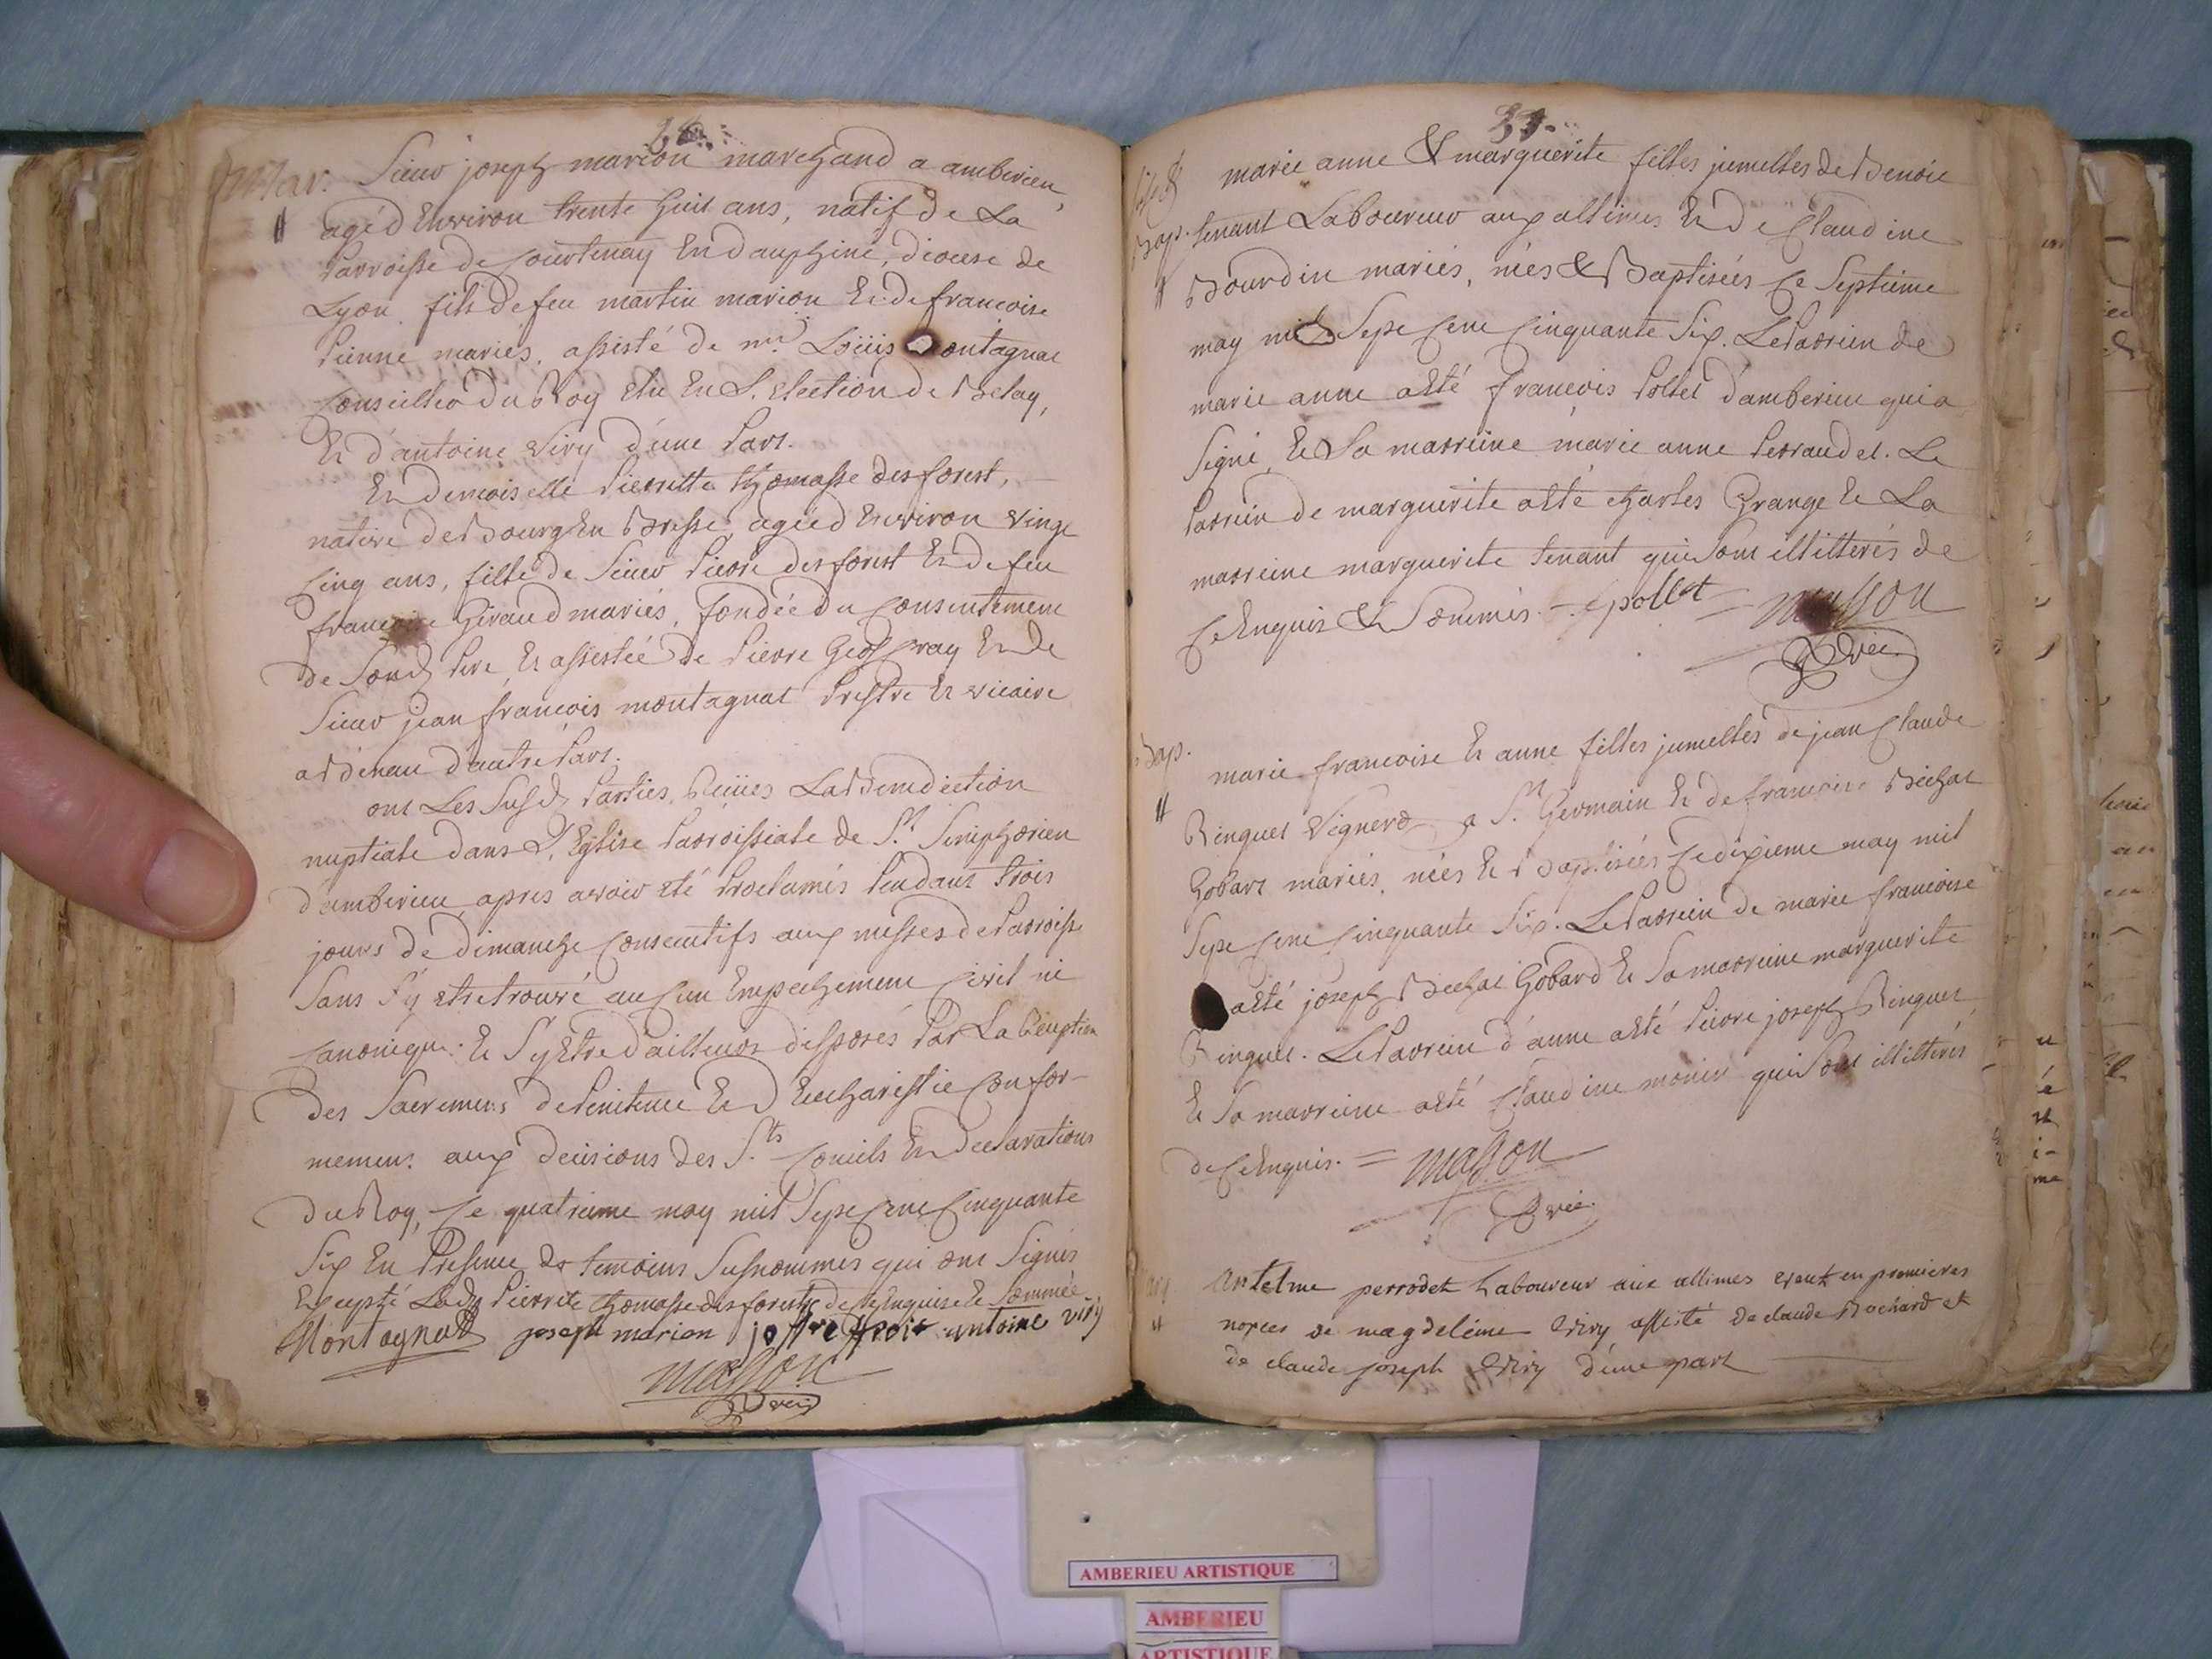 Mar. Sieur joseph marion marchand a amberieu,
agé d'Environ trente huit ans, natif de La
Parroisse de Courtenay En dauphiné, diocese de
Lyon fils de feu martin marion Et de francoise
mariés, assisté de mr. Loüis montagnat
Conseiller Du Roy élu En L'election de Belay,
Et d'antoine Viry d'une Part.
Et Demoiselle Pierrette thomasse desforest,
native de Bourg En Bresse agée d'Environ vingt
Cinq ans, fille de Sieur Pierre desforest Et de feu
francoise Giraud mariés, fondée du Consentement
de Sond. Pere, Et assistée de Pierre Et de
Sieur jean francois montagnat Prestre Et vicaire
a d'autre Part.
ont Les Susd. Parties, La Benediction
nuptiale dans L'Eglise Parroissiale de St. Simphorien
d'amberieu apres avoir été Proclamés Pendant trois
jours de dimanche Consecutifs aux messes de Parroisse
Sans S'y etre trouvé auCun Empechement Civil ni
Canonique. Et S'y Etre d'ailleurs disposés Par La
des Sacremens de Penitence Et D'Eucharistie Confor-
mement aux decisions des Sts. Concils Et declarations
du Roy, Ce quatrieme may mil Sept Cent Cinquante
Six En Presence des temoins Susnommés qui ont Signés
Excepté Lad. Pierrette thomasse desforest de Ce Enquise Et Sommée
Montagnat joseph marion antoine viry
masson
vic.
37.
marie anne & marguerite filles jumelles de Benoit
Bap. tenant Laboureur aux allimes Et de Claudine
Bourdin mariés, nées & Baptisées Ce Septieme
may mil Sept Cent Cinquante Six. Le Parrein de
marie anne a Eté francois Pollet d'amberieu qui a
Signé, Et Sa marreine marie anne Perraudet. Le
Parrein de marguerite a Eté charles Grange Et La
marreine marguerite tenant qui Sont illitterés de
Ce Enquis & Sommés. pollet masson
vic.
Bap. marie francoise Et anne filles jumelles de jean Claude
Ringuet Vigneron a St. Germain Et de francoise Bechat
Gobart mariés, nées Et Baptisées Ce dixieme may mil
Sept Cent Cinquante Six. Le Parrein de marie francoise
a Eté joseph Bechat Gobard Et Sa marreine marguerite
Ringuet. Le Parrein d'anne a Eté Pierre joseph Ringuet
Et Sa marreine a Eté Claudine monin qui Sont illitterés
de Ce Enquis. = masson
vic.
Antelme perrodet Laboureur aux allimes veuf en premieres
nopces de magdeleine Viry assisté de claude Bochard et
de claude joseph Viry d'une part
AMBERIEU ARTISTIQUE
AMBERIEU
ARTISTIQUE